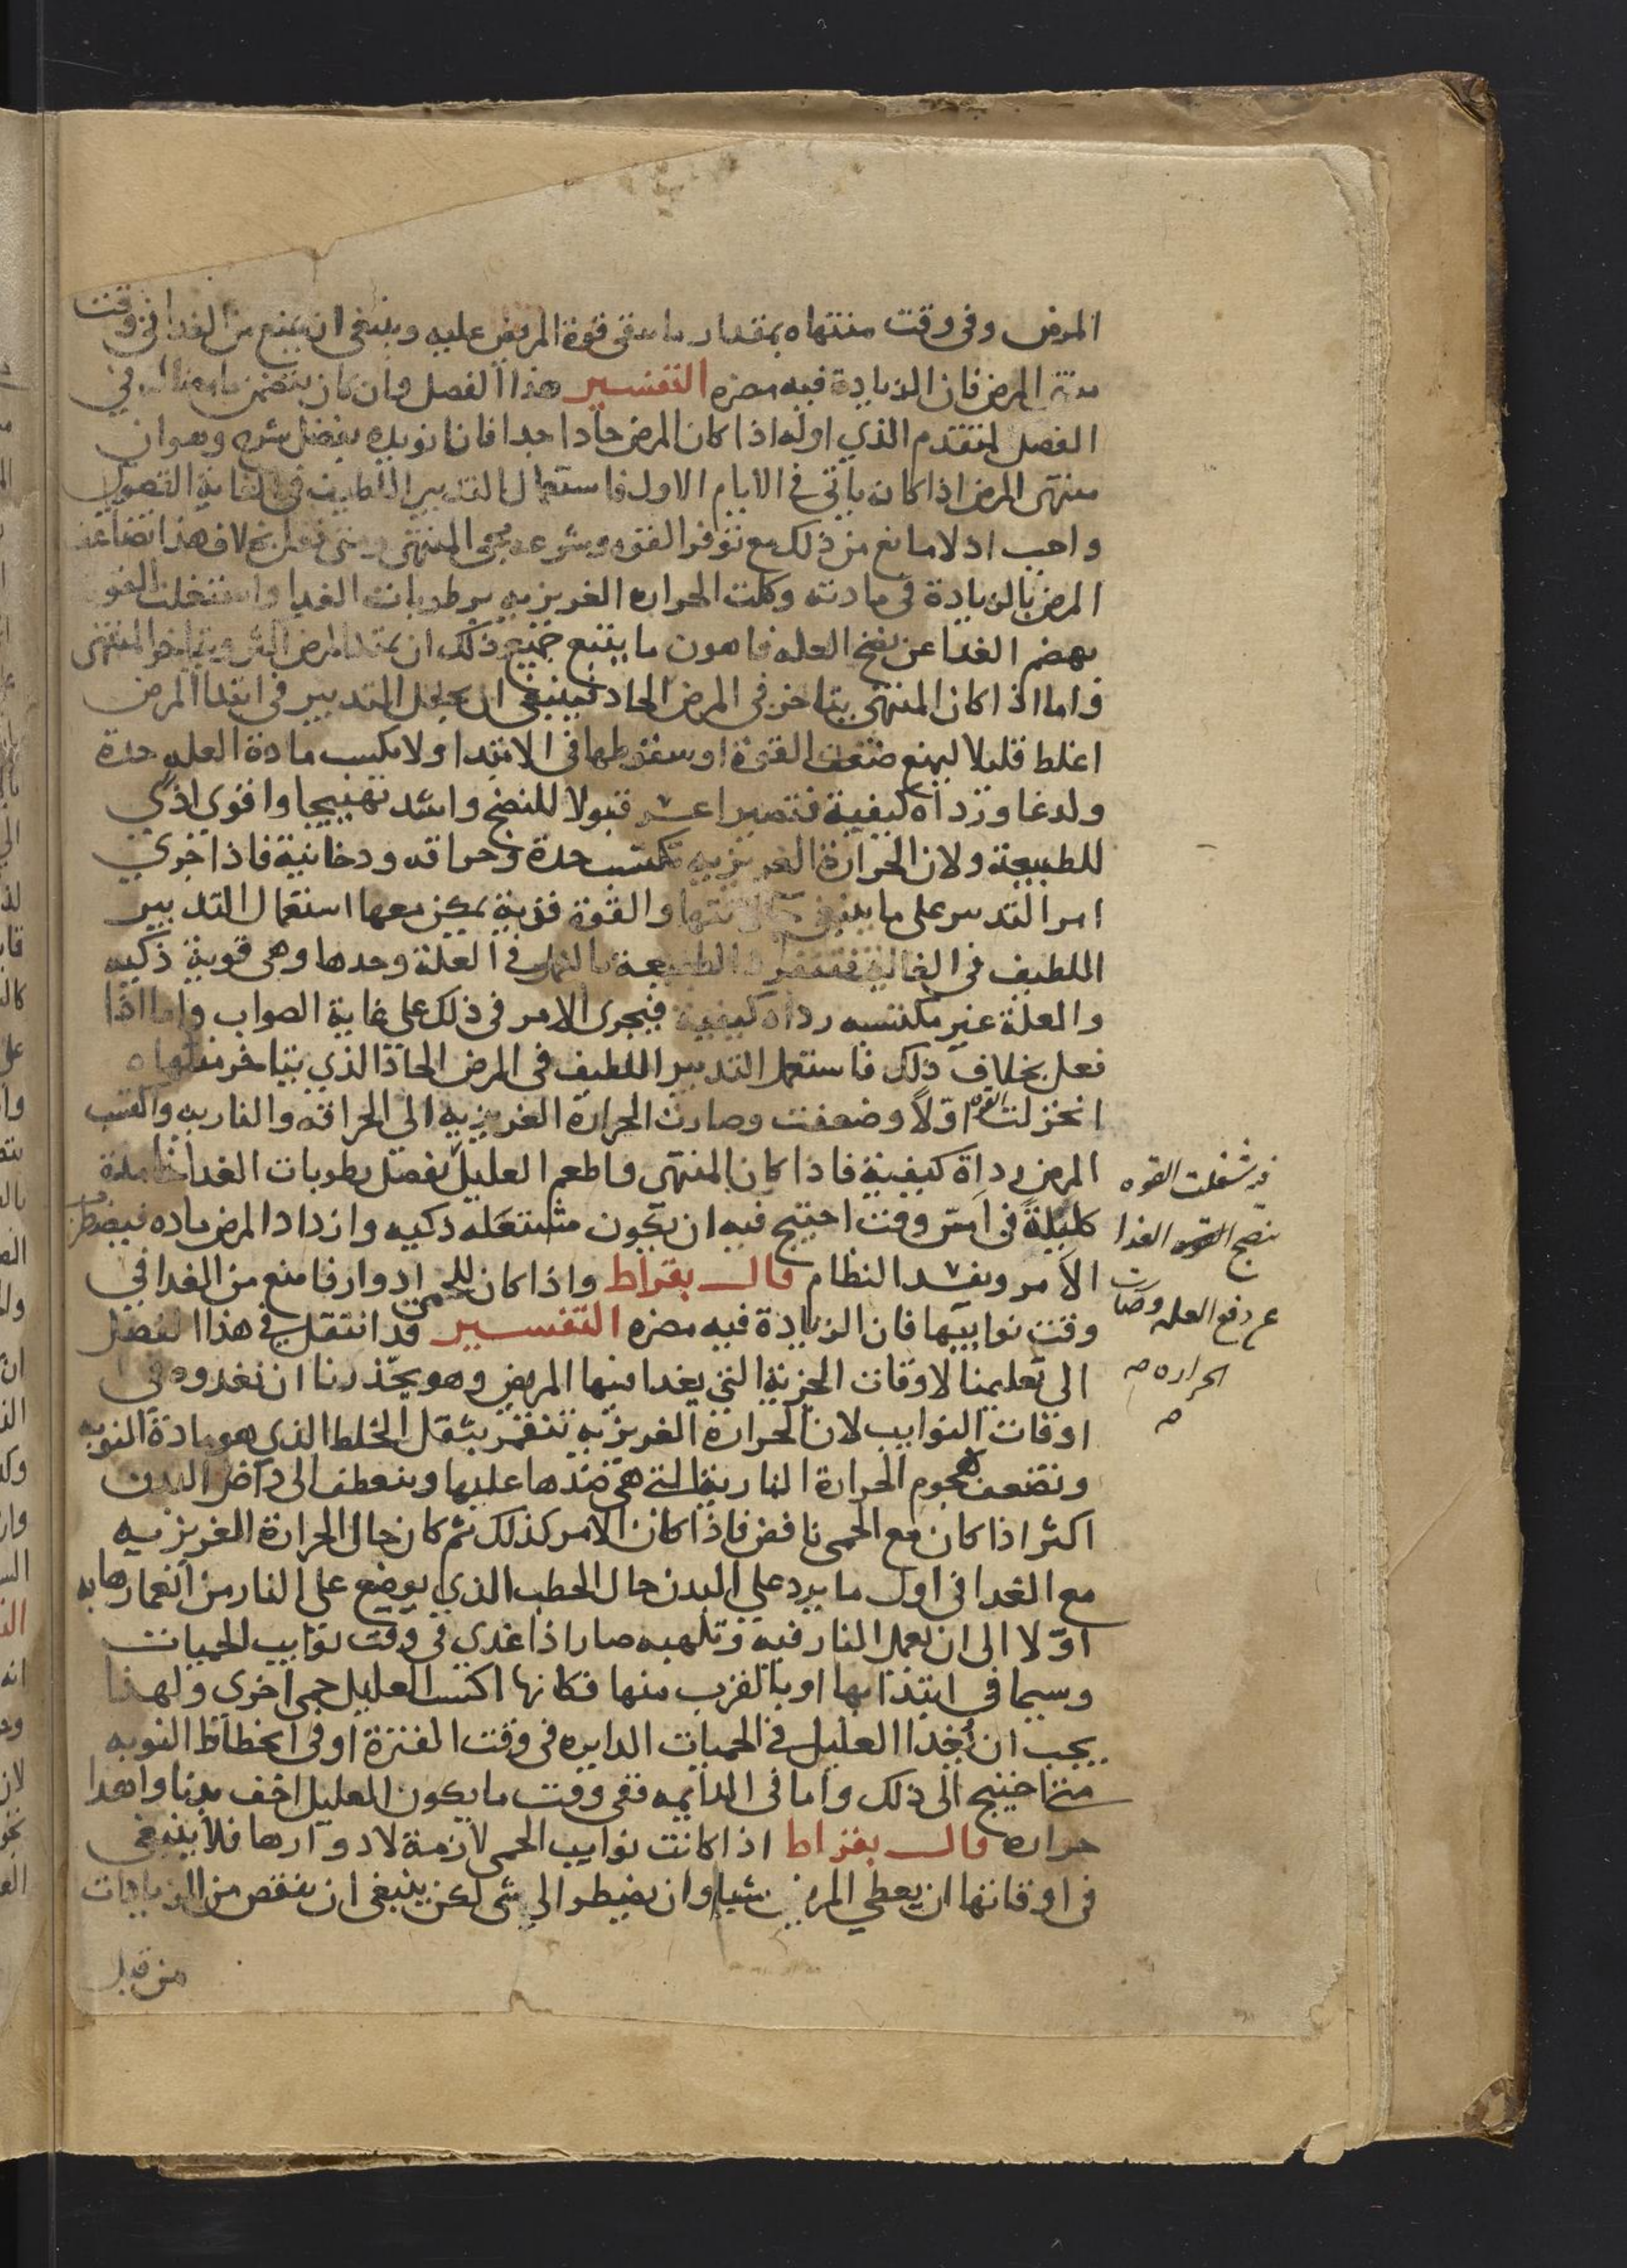 المرض وفى وقت منتهاه بمقدار ما تبقى قوة المريض عليه وينبغى ان يمنع من الغدا فى وقت
منتهى المرض فان الزيادة فيه مضره التفسير هذا الفصل وان كان يتضمن ما فى
الفصل المتقدم الذي اوله اذا كان المرض حادا جدا فانا نويده بفضل شرح وهو ان
منتهى المرض اذا كان ياتى في الايام الاول فاستعمال التدبير اللطيف فى الغاية القصوى
واجب اد لا مانع من ذلك مع توفر القوه وسرعه مجى المنتهى ومتى فعل بخلاف هذا تضاعف
المرض بالزيادة فى مادته وكلت الحراره الغريزيه برطوبات الغدا واشتغلت القوه
بهضم الغدا عن نضج العله فاهون ما يتبع جميع ذلك ان يمتد المرض اكثر ويتاخر المنتهى
واما اذا كان المنتهى يتاخر فى المرض الحاد فينبغى ان يجعل التدبير فى ابتدا المرض
اغلظ قليلا ليمنع ضعف القوة او سقوطها فى الابتدا ولا يكسب مادة العله حدة
ولدغا ورداه كيفية فتصير اعسر قبولا للنضج واشد تهييجا واقوي اذي
للطبيعة ولان الحرارة الغريزيه تكتسب حدة وحراقه ودخانية فاذا جري
امر التدبير على ما ينبغى والقوة قوية يمكن معها استعمال التدبير
اللطيف فى الغاية فتنفرد الطبيعة بالعمل في العلة وحدها وهى قوية ذكيه
والعلة غير مكتسبه رداه كيفية فيجرى الامر فى ذلك على غاية الصواب واما اذا
فعل بخلاف ذلك فاستعمل التدبير اللطيف فى المرض الحاد الذي يتاخر منتهاه
انخزلت القوه اولا وضعفت وصارت الحرارة الغريزيه الى الحراقه والناريه واكتسب
المرض رداة كيفية فاذا كان المنتهى واطعم العليل بفضل رطوبات الغدا خامدة
كليلة فى امس وقت احتيج فيه ان تكون مشتعله ذكيه وازداد المرض ماده فيضطرب
الامر ويفسد النظام قال بقراط واذا كان للحمى ادوار فامنع من الغدا في
وقت نوايبها فان الزيادة فيه مضره التفسير قد انتقل في هذا الفصل
الى تعليمنا الاوقات الجزية التى يغدا فيها المريض وهو يحذرنا ان نغدوه فى
اوقات النوايب لان الحرارة الغريزيه تنقهر بثقل الخلط الذي هو مادة النوبه
وتضعف بهجوم الحرارة النارية التى هى ضدها عليها وينعطف الى داخل البدن
اكثر اذا كان مع الحمى نافض فاذا كان الامر كذلك ثم كان حال الحرارة الغريزيه
مع الغدا فى اول ما يرد علي البدن حال الحطب الذي يوضع على النار من انغمارها به
اولا الى ان تعمل النار فيه وتلهبه صار اذا غدي فى وقت نوايب الحميات
وسيما فى ابتدايها او بالقرب منها فكانها اكتسب العليل حمى اخرى ولهذا
يجب ان يُغدا العليل في الحميات الدايره فى وقت الفترة او فى انحطاط النوبه
متى احتيج الى ذلك واما فى الدايمه ففى وقت ما يكون العليل اخف بدنا واهدا
حراره قال بقراط اذا كانت نوايب الحمى لازمة لادوارها فلا ينبغى
فى اوقاتها ان يعطي المريض شيا وان يضطر الى شى لكن ينبغى ان ينقص من الزيادات
من قبل
قد شغلت القوه
بنضج الغدا
عن دفع العله وصارت
الحراره